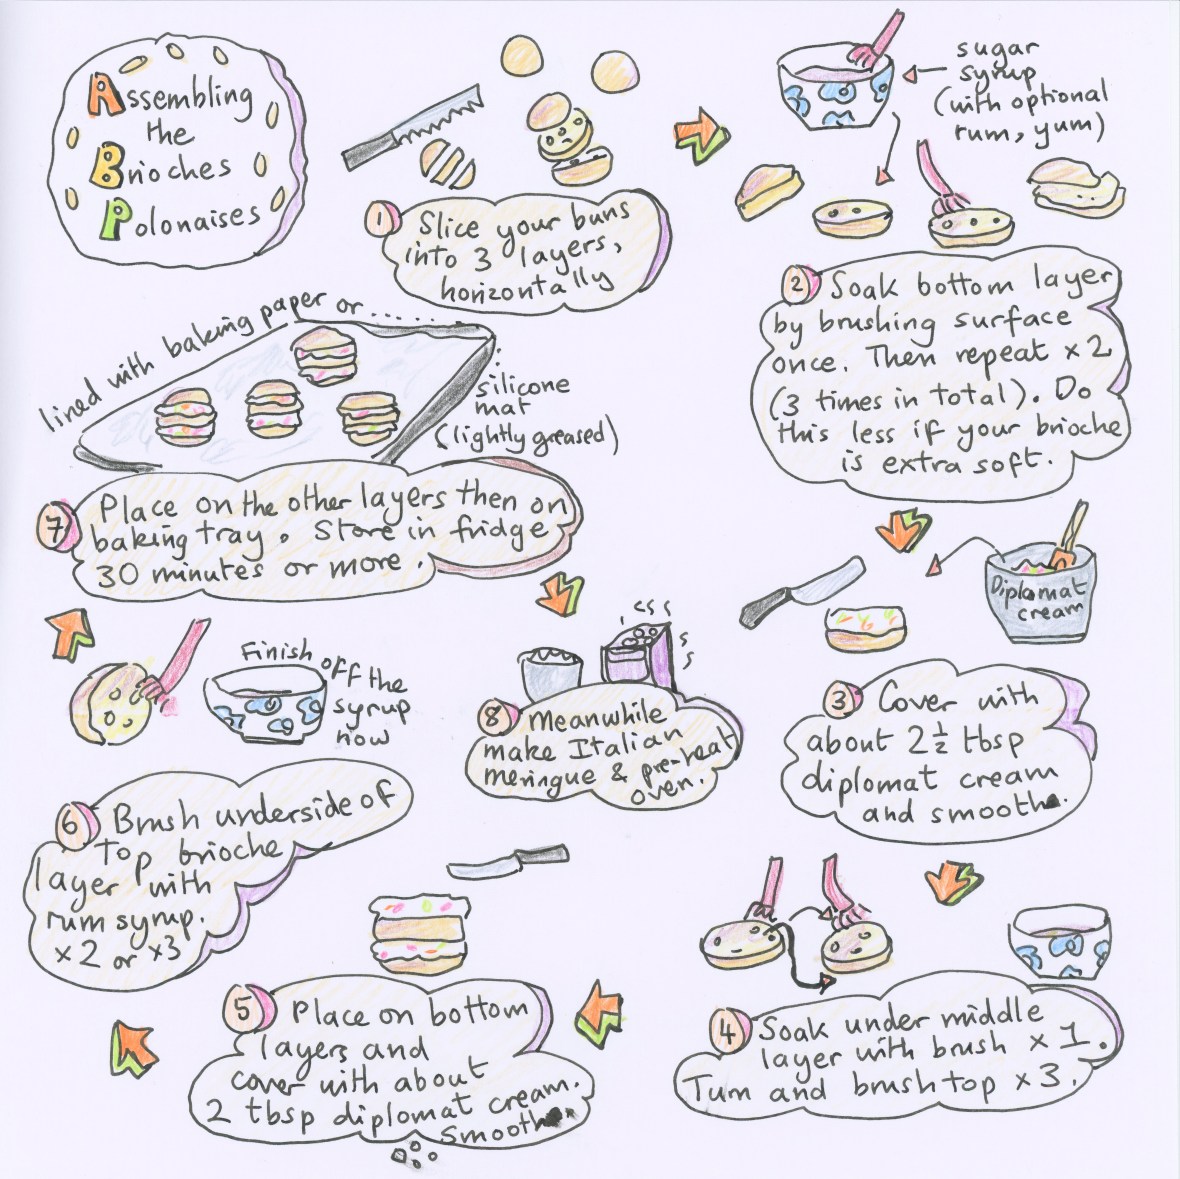 Assembling
the
Brioches
Polonaises
1
Slice your buns
into 3 layers,
horizontally
sugar
syrup
(with optional
rum, yum)
2 Soak bottom layer
by brushing surface
once. Then repeat x 2
(3 times in total). Do
this less if your brioche
is extra soft.
Diplomat
cream
3 Cover with
about 2 1/2 tbsp
diplomat cream
and smooth.
4 Soak under middle
layer with brush x 1.
Turn and brush top x 3.
5 Place on bottom
layers and
cover with about
2 tbsp diplomat cream.
Smooth.
Finish off the
syrup
now
6 Brush underside of
top brioche
layer with
rum syrup.
x2 or x3
lined with baking paper or ......
silicone
mat
(lightly greased)
7 Place on the other layers then on
baking tray. Store in fridge
30 minutes or more.
8 Meanwhile
make Italian
meringue & pre-heat
oven.